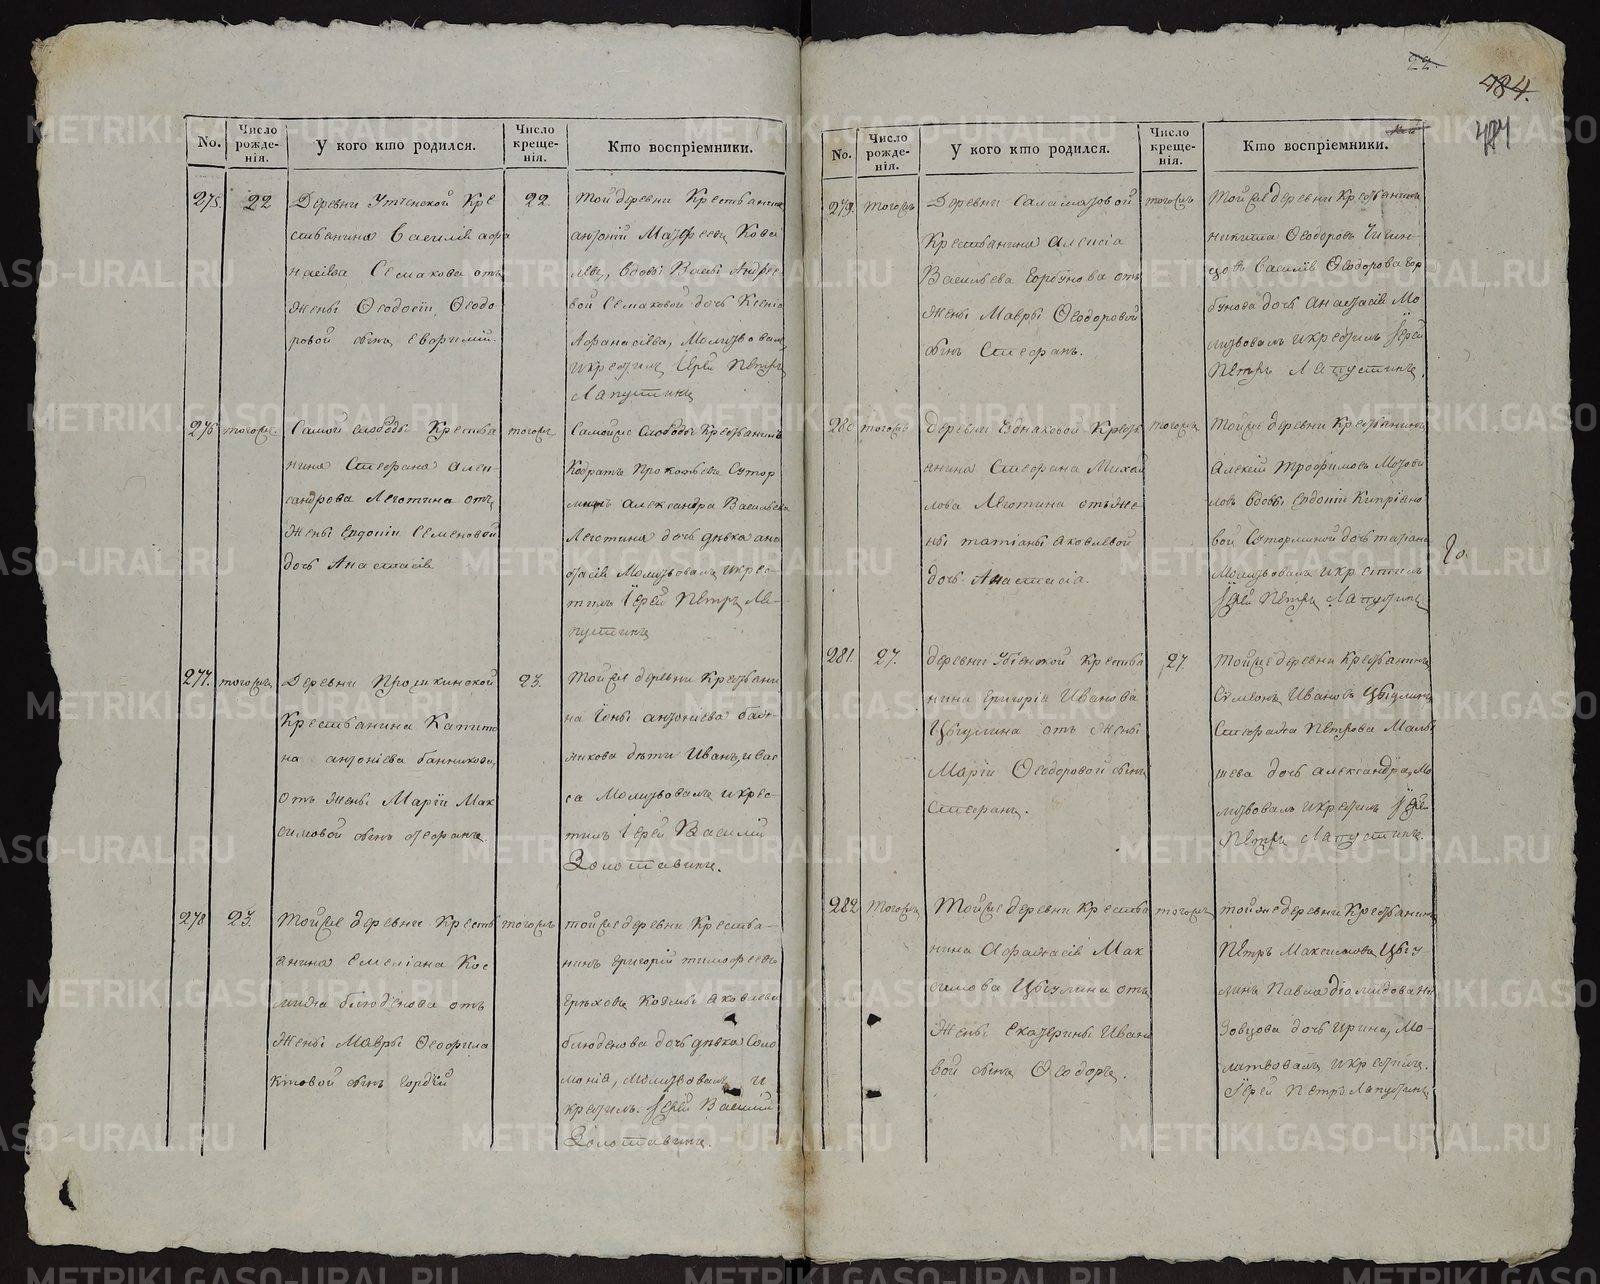 22.
484.
484
No.
Число рожде-нія.
У кого кто родился.
Число креще-нія.
Кто воспріемники.
275.
22
Деревни Утченской Кре
стьянина Василія Афа
насіева Семакова отъ
жены Ѳеодосіи Ѳеодо
ровой сынъ Евфимій.
22.
Той деревни Крестьянинъ
Антоній Матфеевъ Кова
левъ, вдовы Андрее
вой Семаковой дочь Ксенія
Афанасіева, Молитвовалъ
и крестилъ Іерей Петръ
Лапутинъ
276
тогожъ.
Самой слободы Крестья
нина Стефана Алек
сандрова Леготина отъ
жены Евдокіи Семеновой
дочь Анастасія
тогожъ
Самойже слободы Крестьянинъ
Кодратъ Прокопьевъ Сутор
минъ Александра Васильева
Леготина дочь девка Ана
стасія Молитвовалъ и крес-
тилъ Іерей Петръ Ла-
путинъ
277.
тогожъ
Деревни Прошкинской
Крестьянина Капито
на Антоніева Банникова,
отъ жены Маріи Мак
симовой сынъ Стефанъ
23.
Тойже деревни Крестьяни
на Іоны Антоніева Бан-
никова дети Иванъ, и Вас
са Молитвовалъ и крес-
тилъ Іерей Василій
Золотавинъ.
278
23.
Тойже деревни Кресть
янина Емеліана Кос
мина Блюденова отъ
жены Мавры Ѳеофила
ктовой сынъ Гордѣй
тогожъ
тойже деревни Крестья-
нинъ Григорій Тимофеевъ
Ерыховъ Козмы Яковлева
Блюденова дочь девка Соло
монія, молитвовалъ и
крестилъ. Іерей Василій
Золотавинъ.
No.
Число рожде-нія.
У кого кто родился.
Число креще-нія.
Кто воспріемники.
279.
тогожъ
Деревни Саламатовой
Крестьянина Алексія
Васильева Горбунова отъ
жены Мавры Ѳеодоровой
сынъ Стефанъ.
тогожъ
Тойже деревни Крестьянинъ
Никита Ѳеодоровъ
Василія Ѳеодорова Гор
бунова дочь Анастасія Мо
литвовалъ и крестилъ Іерей
Петръ Лапутинъ.
280
тогожъ
деревни Крестья
янина Стефана Михай
лова Леготина отъ же
ны Татіаны Яковлевой
дочь Анастасіа.
тогожъ
Тойже деревни Крестьянинъ
Алексій Трофимовъ
вдовы Евдокіи Кипріяно
вой Суторминой дочь Татіана
Молитвовалъ и крестилъ
Іерей Петръ Лапутинъ
281.
27.
деревни Крестья
нина Григорія Иванова
Цыгулина отъ жены
Маріи Ѳеодоровой сынъ
Стефанъ.
27
Тойже деревни Крестьянинъ
Сумеонъ Ивановъ Цыгулинъ
Стефана Петрова Малы
шева дочь Александра, Мо
литвовалъ и крестилъ Іерей
Петръ Лапутинъ.
282
тогожъ
Тойже деревни Крестья
нина Афанасія Мак
симова Цыгулина отъ
жены Екатерины Ивано
вой сынъ Ѳеодоръ.
тогожъ
тойже деревни Крестьянинъ
Петръ Максимовъ Цыгу
линъ Павла Діомидова Ни
зовцова дочь Ирина, Мо-
литвовалъ и крестилъ.
Іерей Петръ Лапутинъ
METRIKI.GASO-URAL.RU